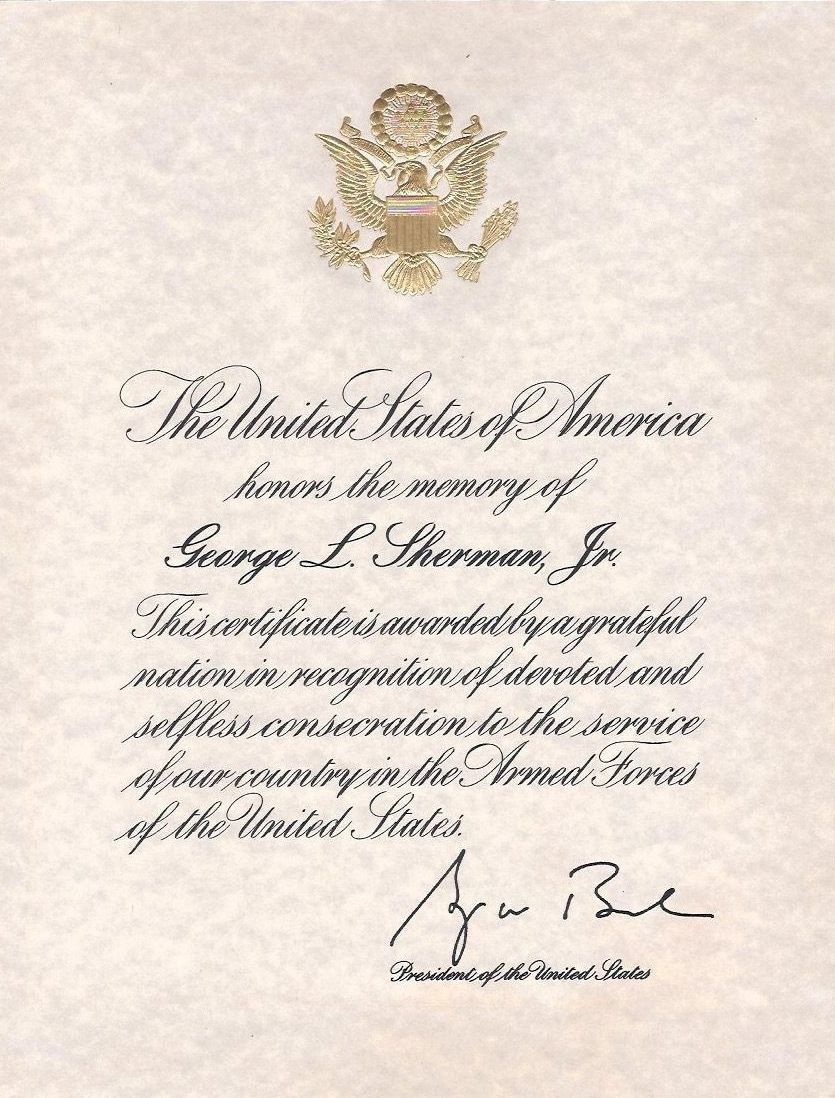 The United States of America
honors the memory of
George L. Sherman, Jr.
This certificate is awarded by a grateful
nation in recognition of devoted and
selfless consecration to the service
of our country in the Armed Forces
of the United States.
President of the United States